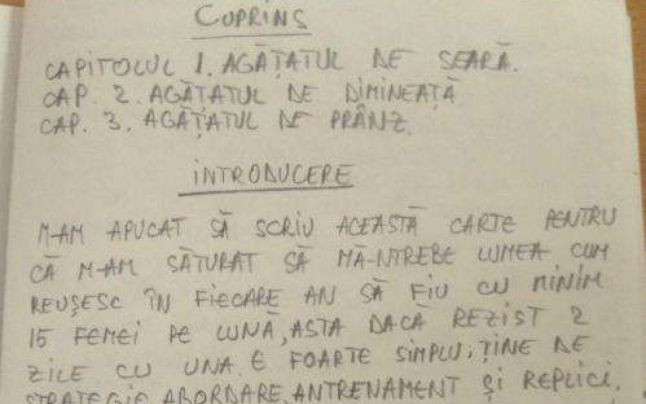 CUPRINS
CAPITOLUL 1. AGĂȚATUL DE SEARĂ.
CAP. 2. AGĂȚATUL DE DIMINEAȚĂ
CAP. 3. AGĂȚATUL DE PRÂNZ.
INTRODUCERE
M-AM APUCAT SĂ SCRIU ACEASTĂ CARTE PENTRU
CĂ M-AM SĂTURAT SĂ MĂ-NTREBE LUMEA CUM
REUȘESC ÎN FIECARE AN SĂ FIU CU MINIM
15 FEMEI PE LUNĂ, ASTA DACĂ REZIST 2
ZILE CU UNA. E FOARTE SIMPLU; ȚINE DE
STRATEGIE, ABORDARE, ANTRENAMENT ȘI REPLICI.